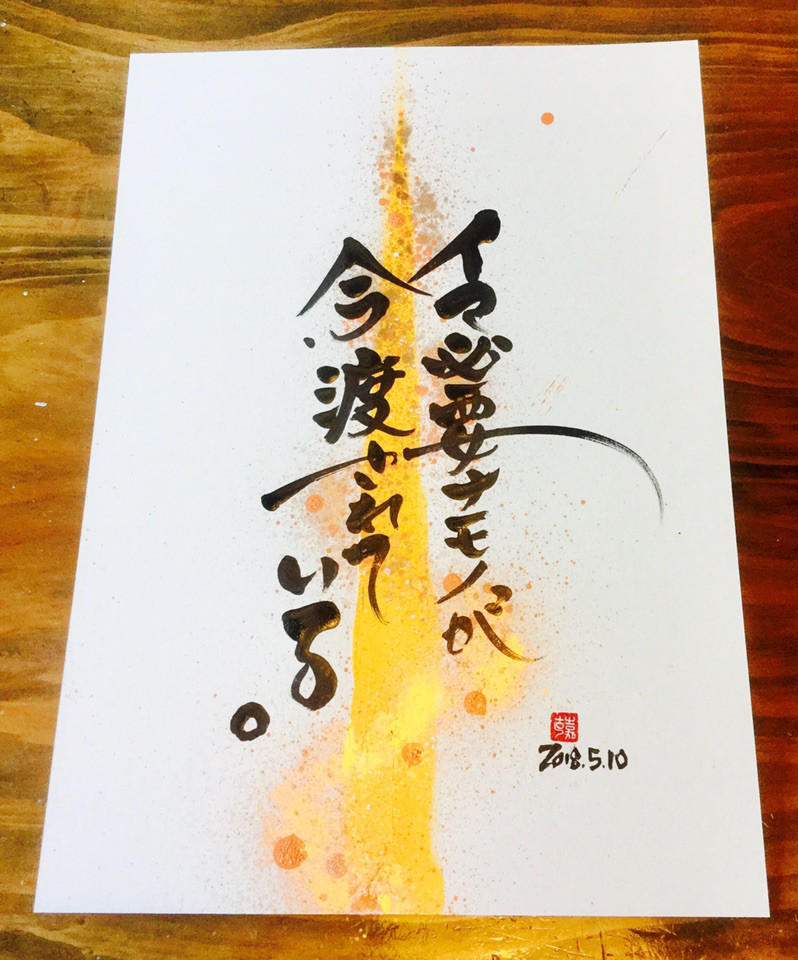 イマ必要ナモノが
今、渡されて
いる。
2018.5.10